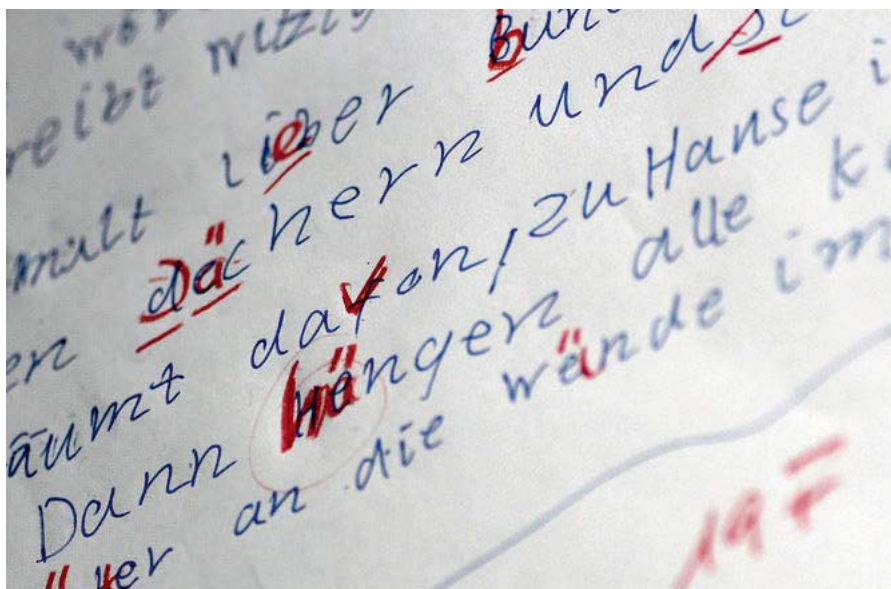 reibt witzig
malt lieber bun
en Dächern und si
äumt davon, zu Hause i
Dann hängen alle k
ter an die wände im
19 F